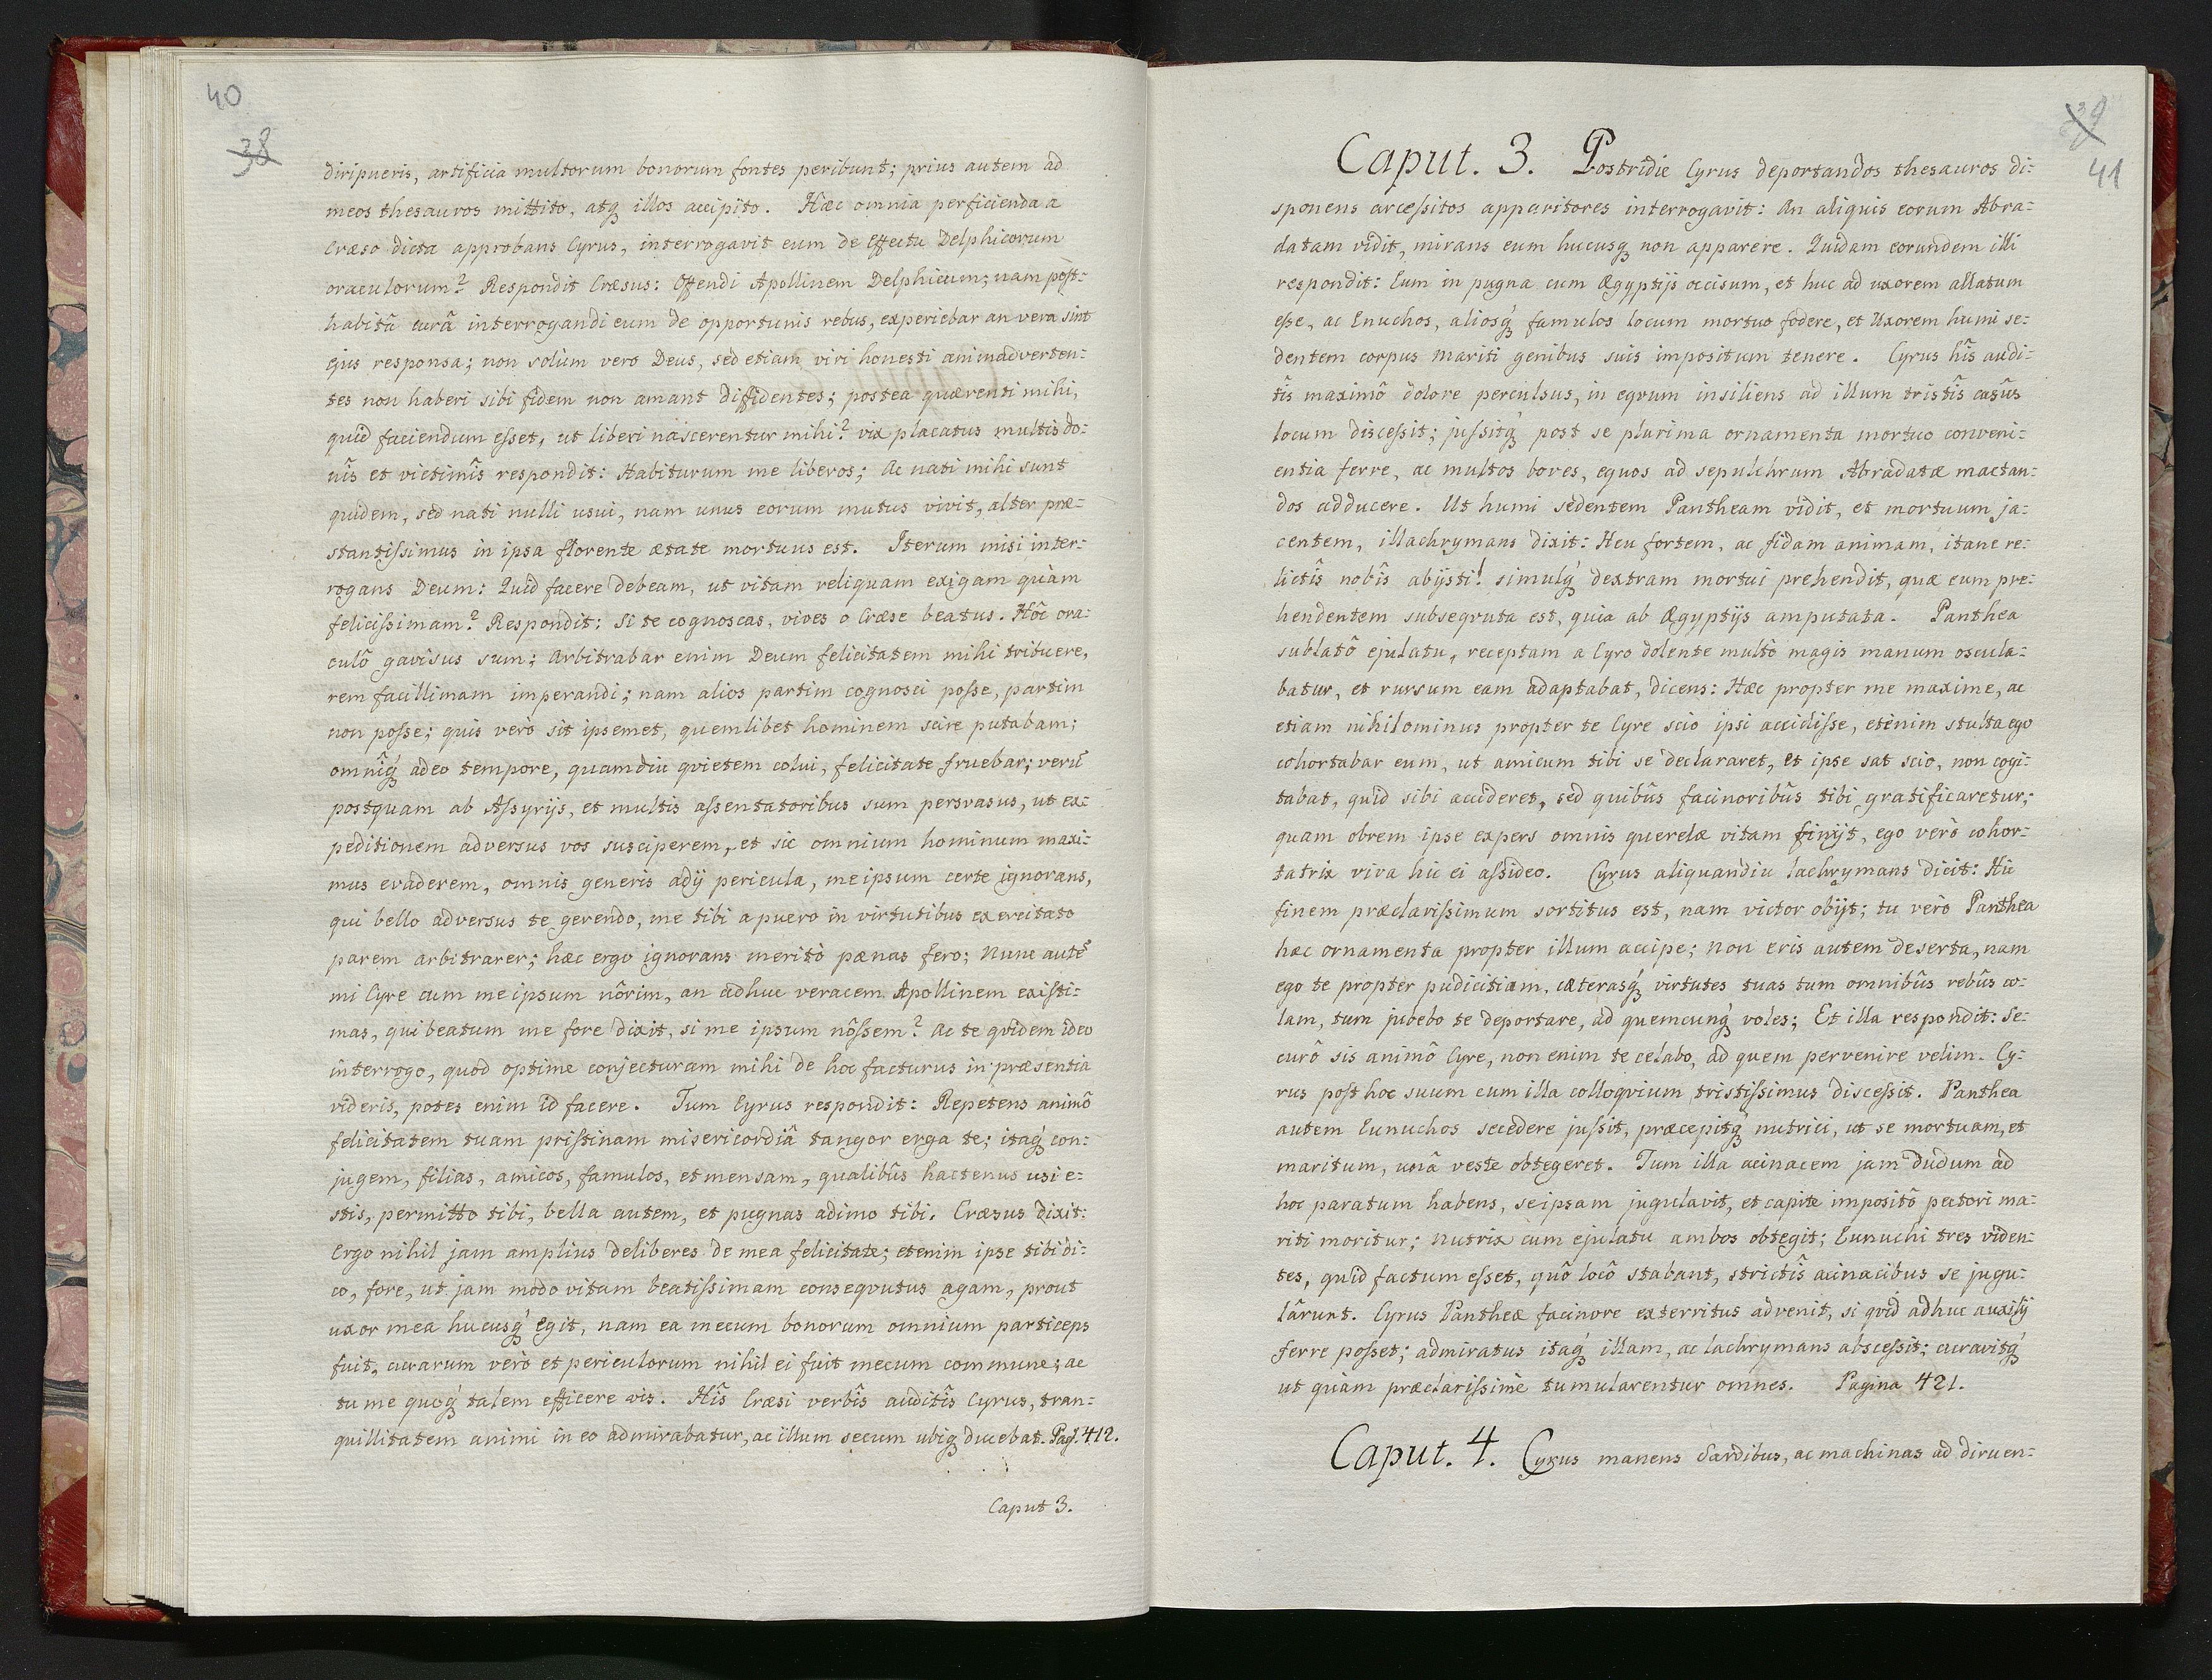 40
38
diripueris, artificia multorum bonorum fontes peribunt; prius autem ad
meos thesauros mittito, atq; illos accipito. Hæc omnia perficienda a
Cræso dicta approbans Cyrus, interrogavit eum de effectu Delphicorum
oraculorum? Respondit Cræsus: Offendi Apollinem Delphicum; nam post-
habitâ curâ interrogandi eum de opportunis rebus, experiebar an vera sint
ejus responsa; non solùm vero Deus, sed etiam viri honesti animadverten:
tes non haberi sibi fidem non amant diffidentes; postea quærenti mihi,
quid faciendum esset, ut liberi nascerentur mihi? vix placatus multis do:
nîs et victimîs respondit: Habiturum me liberos; Ac nati mihi sunt
quidem, sed nati nulli usui, nam unus eorum mutus vivit, alter præ-
stantissimus in ipsa florente ætate mortuus est. Iterum misi inter:
rogans Deum: Quid facere debeam, ut vitam reliquam exigam quàm
felicissimam? Respondit: Si te cognoscas, vives o Cræse beatus. Hôc ora:
culô gavisus sum; Arbitrabar enim Deum felicitatem mihi tribuere,
rem facillimam imperandi; nam alios partim cognosci posse, partim
non posse; quis verò sit ipsemet, quemlibet hominem scire putabam;
omnîq́; adeo tempore, quamdiu qvietem colui, felicitate fruebar; verũ
postquam ab Assyrijs, et multis assentatoribus sum persvasus, ut ex:
peditionem adversus vos susciperem, et sic omnium hominum maxi:
mus evaderem, omnis generis adij pericula, me ipsum certe ignorans,
qui bello adversus te gerendo, me tibi a puero in virtutibus exercitato
parem arbitrarer; hæc ergo ignorans meritò pænas fero; Nunc autẽ
mi Cyre cum me ipsum nôrim, an adhuc veracem Apollinem existi:
mas, qui beatum me fore dixit, si me ipsum nôssem? Ac te qvidem ideo
interrogo, quod optime conjecturam mihi de hoc facturus in præsentia
videris, potes enim id facere. Tum Cyrus respondit: Repetens animô
felicitatem tuam pristinam misericordiâ tangor erga te; itaq́; con:
jugem, filias, amicos, famulos, et mensam, qualibûs hactenus usi e:
stis, permitto tibi, bella autem, et pugnas adimo tibi. Cræsus dixit:
Ergo nihil jam amplius deliberes de mea felicitate; etenim ipse tibi di:
co, fore, ut jam modo vitam beatissimam conseqvutus agam, prout
uxor mea hucusq́; egit, nam ea mecum bonorum omnium particeps
fuit, curarum verò et periculorum nihil ei fuit mecum commune; ac
tu me quoq́; talem efficere vis. Hîs Cræsi verbîs auditîs Cyrus, tran:
quillitatem animi in eo admirabatur, ac illum secum ubiq; ducebat. Pag. 412.
Caput 3.
39
41
Caput. 3. Postridie Cyrus deportandos thesauros di:
sponens arcessitos apparitores interrogavit: An aliquis eorum Abra:
datam vidit, mirans eum hucusq; non apparere. Quidam eorundem illi
respondit: Eum in pugna cum Ægyptijs occisum, et huc ad uxorem allatum
esse, ac Enuchos, aliosq́; famulos locum mortuo fodere, et Uxorem humi se:
dentem corpus mariti genibus suis impositum tenere. Cyrus hîs audi:
tîs maximô dolore perculsus, in eqvum insiliens ad illum tristîs casûs
locum discessit; jussitq́; post se plurima ornamenta mortuo conveni:
entia ferre, ac multos boves, equos ad sepulchrum Abradatæ mactan:
dos adducere. Ut humi sedentem Pantheam vidit, et mortuum ja:
centem, illachrymans dixit: Heu fortem, ac fidam animam, itane re:
lictîs nobîs abijsti! simulq́; dextram mortui prehendit, quæ eum pre:
hendentem subseqvuta est, quia ab Ægyptijs amputata. Panthea
sublatô ejulatu, receptam a Cyro dolente multò magis manum oscula:
batur, et rursum eam adaptabat, dicens: Hæc propter me maxime, ac
etiam nihilominus propter te Cyre scio ipsi accidisse, etènim stulta ego
cohortabar eum, ut amicum tibi se declararet, et ipse sat scio, non cogi:
tabat, quid sibi accideret, sed quibûs facinoribûs tibi gratificaretur;
quam obrem ipse expers omnis querelæ vitam finijt, ego verò cohor:
tatrix viva hic ei assideo. Cyrus aliquandiu lachrymans dicit: Hic
finem præclarissimum sortitus est, nam victor obijt; tu verò Panthea
hæc ornamenta propter illum accipe; Non eris autem deserta, nam
ego te propter pudicitiam, cæterasq́; virtutes tuas tum omnibûs rebûs co:
lam, tum jubebo te deportare, ad quemcunq́; voles; Et illa respondit: Se:
curô sis animô Cyre, non enim te celabo, ad quem pervenire velim. Cy:
rus post hoc suum cum illa colloqvium tristissimus discessit. Panthea
autem Eunuchos secedere jussit, præcepitq́; nutrici, ut se mortuam, et
maritum, unâ veste obtegeret. Tum illa acinacem jam dudum ad
hoc paratum habens, se ipsam jugulavit, et capite impositô pectori ma:
riti moritur; Nutrix cum ejulatu ambos obtegit; Eunuchi tres viden:
tes, quid factum esset, quô locô stabant, strictîs acinacibus se jugu:
lârunt. Cyrus Pantheæ facinore exterritus advenit, si qvid adhuc auxilij
ferre posset; admiratus itaq́; illam, ac lachrymans abscessit; curavitq́;
ut quàm præclarissimè tumularentur omnes. Pagina 421.
Caput. 4. Cyrus manens Sardibus, ac machinas ad diruen: